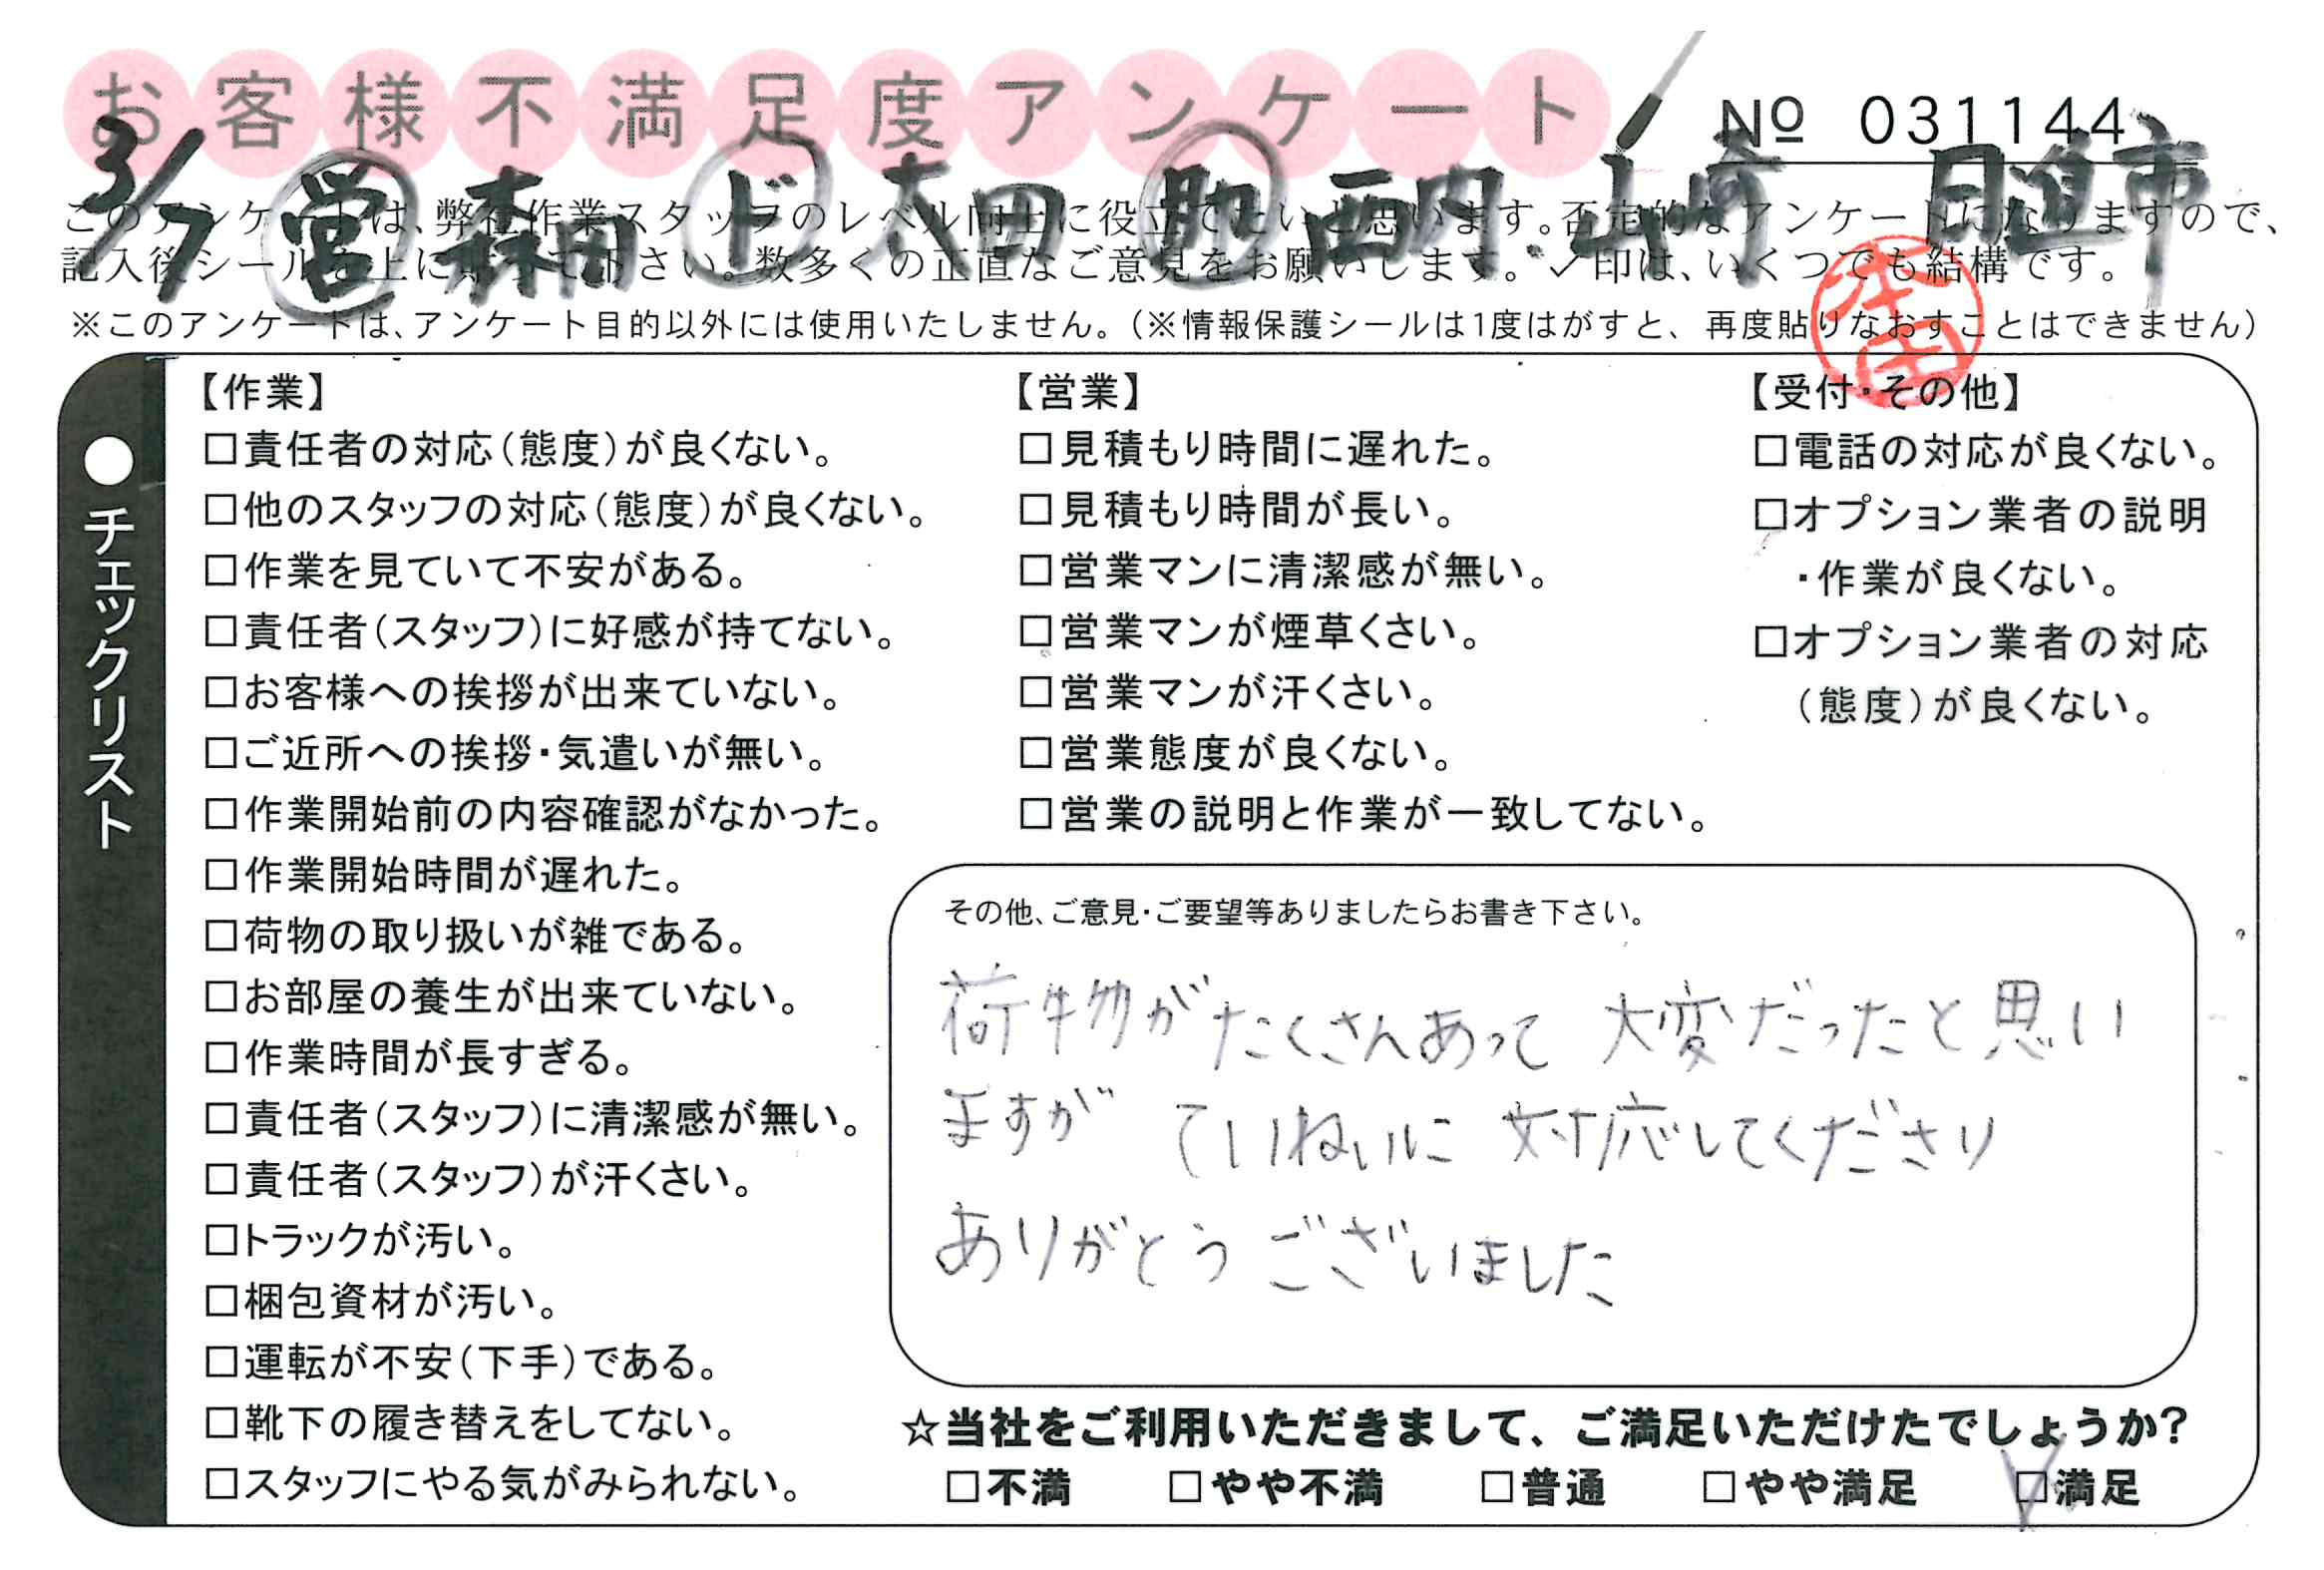 お客様不満足度アンケート
№ 031144
3/7 営 森田 ド 太田 助 西内 山崎 日進市
このアンケートは、弊社作業スタッフのレベル向上に役立てたいと思います。否定的なアンケートになりますので、
記入後シールを上に貼って下さい。数多くの正直なご意見をお願いします。✓印は、いくつでも結構です。
※このアンケートは、アンケート目的以外には使用いたしません。（※情報保護シールは1度はがすと、再度貼りなおすことはできません）
●チェックリスト
【作業】
□責任者の対応（態度）が良くない。
□他のスタッフの対応（態度）が良くない。
□作業を見ていて不安がある。
□責任者（スタッフ）に好感が持てない。
□お客様への挨拶が出来ていない。
□ご近所への挨拶・気遣いが無い。
□作業開始前の内容確認がなかった。
□作業開始時間が遅れた。
□荷物の取り扱いが雑である。
□お部屋の養生が出来ていない。
□作業時間が長すぎる。
□責任者（スタッフ）に清潔感が無い。
□責任者（スタッフ）が汗くさい。
□トラックが汚い。
□梱包資材が汚い。
□運転が不安（下手）である。
□靴下の履き替えをしてない。
□スタッフにやる気がみられない。
【営業】
□見積もり時間に遅れた。
□見積もり時間が長い。
□営業マンに清潔感が無い。
□営業マンが煙草くさい。
□営業マンが汗くさい。
□営業態度が良くない。
□営業の説明と作業が一致してない。
【受付・その他】
□電話の対応が良くない。
□オプション業者の説明
・作業が良くない。
□オプション業者の対応
（態度）が良くない。
その他、ご意見・ご要望等ありましたらお書き下さい。
荷物がたくさんあって 大変だったと思い
ますが ていねいに 対応してくださり
ありがとう ございました
☆当社をご利用いただきまして、ご満足いただけたでしょうか?
□不満 □やや不満 □普通 □やや満足 □満足